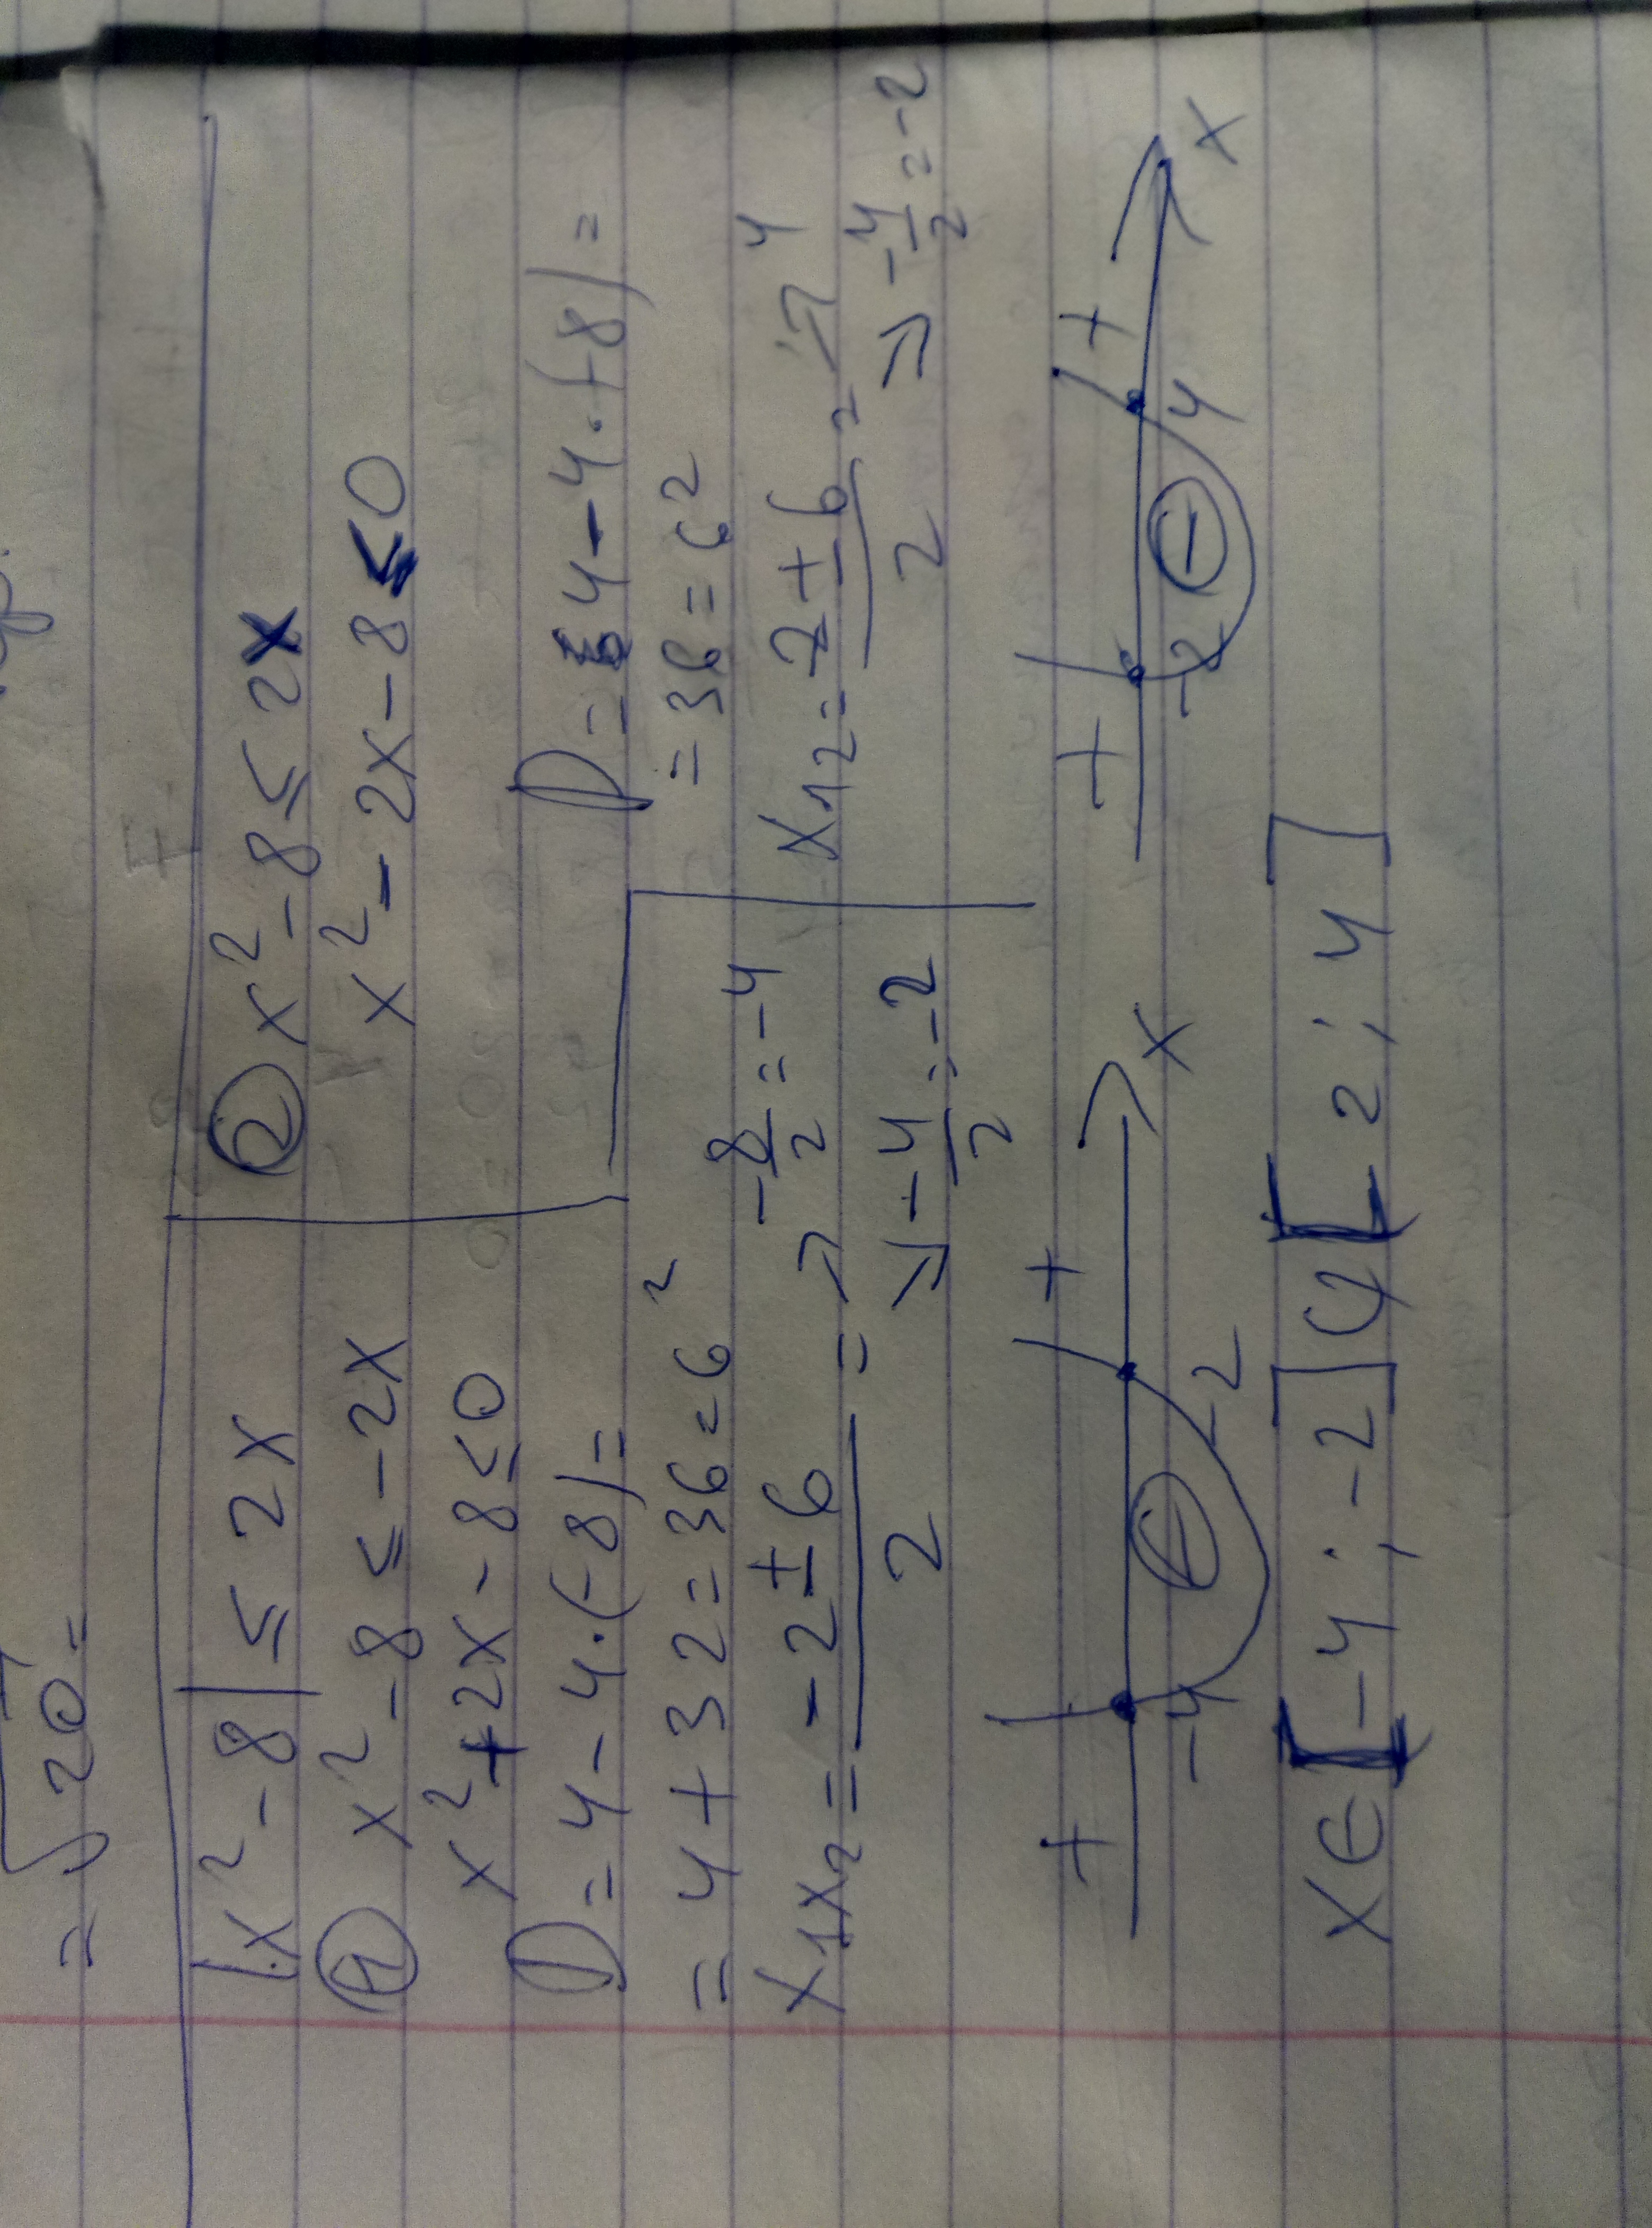 = √20 =
|x² - 8| ≤ 2x
① x² - 8 ≤ -2x
x² + 2x - 8 ≤ 0
D = 4 - 4·(-8) =
= 4 + 32 = 36 = 6²
x₁x₂ = -2 ± 6 / 2 = ↗ -8/2 = -4
↘ -4/2 = -2
+ - +
-4 -2 x
② x² - 8 ≤ 2x
x² - 2x - 8 ≤ 0
D = 4 - 4·(-8) =
= 36 = 6²
x₁₂ = 2 ± 6 / 2 = ↗ 4
↘ -4/2 = -2
+ - +
-2 4 x
x ∈ [-4 ; -2] U [2 ; 4]